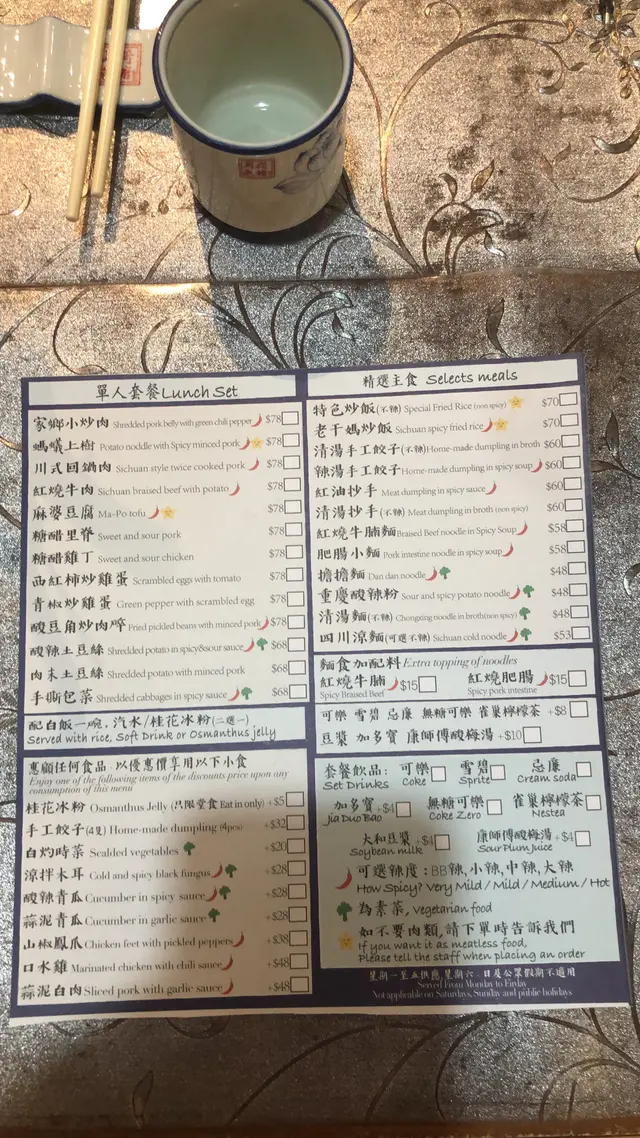 單人套餐 Lunch Set
家鄉小炒肉 Shredded pork belly with green chili pepper $78
螞蟻上樹 Potato noddle with Spicy minced pork $78
川式回鍋肉 Sichuan style twice cooked pork $78
紅燒牛肉 Sichuan braised beef with potato $78
麻婆豆腐 Ma-Po tofu $78
糖醋里脊 Sweet and sour pork $78
糖醋雞丁 Sweet and sour chicken $78
西紅柿炒雞蛋 Scrambled eggs with tomato $78
青椒炒雞蛋 Green pepper with scrambled egg $78
酸豆角炒肉碎 Fried pickled beans with minced pork $78
酸辣土豆絲 Shredded potato in spicy&sour sauce $68
肉末土豆絲 Shredded potato with minced pork $68
手撕包菜 Shredded cabbages in spicy sauce $68
配白飯一碗, 汽水/桂花冰粉(二選一)
Served with rice, Soft Drink or Osmanthus jelly
惠顧任何食品, 以優惠價享用以下小食
Enjoy one of the following items of the discounts price upon any
consumption of this menu
桂花冰粉 Osmanthus Jelly (只限堂食 Eat in only) +$5
手工餃子(4隻) Home-made dumpling (4pcs) +$32
白灼時菜 Scalded vegetables +$20
涼拌木耳 Cold and spicy black fungus +$28
酸辣青瓜 Cucumber in spicy sauce +$28
蒜泥青瓜 Cucumber in garlic sauce +$28
山椒鳳爪 Chicken feet with pickled peppers +$38
口水雞 Marinated chicken with chili sauce +$48
蒜泥白肉 Sliced pork with garlic sauce +$48
精選主食 Selects meals
特色炒飯(不辣) Special Fried Rice (non spicy) $70
老干媽炒飯 Sichuan spicy fried rice $70
清湯手工餃子(不辣) Home-made dumpling in broth $60
辣湯手工餃子 Home-made dumpling in spicy soup $60
紅油抄手 Meat dumpling in spicy sauce $60
清湯抄手(不辣) Meat dumpling in broth (non spicy) $60
紅燒牛腩麵 Braised Beef noodle in Spicy Soup $58
肥腸小麵 Pork intestine noodle in spicy soup $58
擔擔麵 Dan dan noodle $48
重慶酸辣粉 Sour and spicy potato noodle $48
清湯麵(不辣) Chongqing noodle in broth(non spicy) $48
四川涼麵(可選不辣) Sichuan cold noodle $53
麵食加配料 Extra topping of noodles
紅燒牛腩 $15 紅燒肥腸 $15
Spicy Braised Beef Spicy pork intestine
可樂 雪碧 忌廉 無糖可樂 雀巢檸檬茶 +$8
豆漿 加多寶 康師傅酸梅湯 +$10
套餐飲品: 可樂 雪碧 忌廉
Set Drinks Coke Sprite Cream soda
加多寶 +$4 無糖可樂 雀巢檸檬茶
Jia Duo Bao Coke Zero Nestea
大和豆漿 +$4 康師傅酸梅湯 +$4
Soybean milk Sour Plum Juice
可選辣度: BB辣, 小辣, 中辣, 大辣
How Spicy? Very Mild / Mild / Medium / Hot
為素菜, Vegetarian food
如不要肉類, 請下單時告訴我們
If you want it as meatless food,
Please tell the staff when placing an order
星期一至五供應 星期六、日及公眾假期不適用
Served From Monday to Firday
Not applicable on Saturdays, Sunday and public holidays